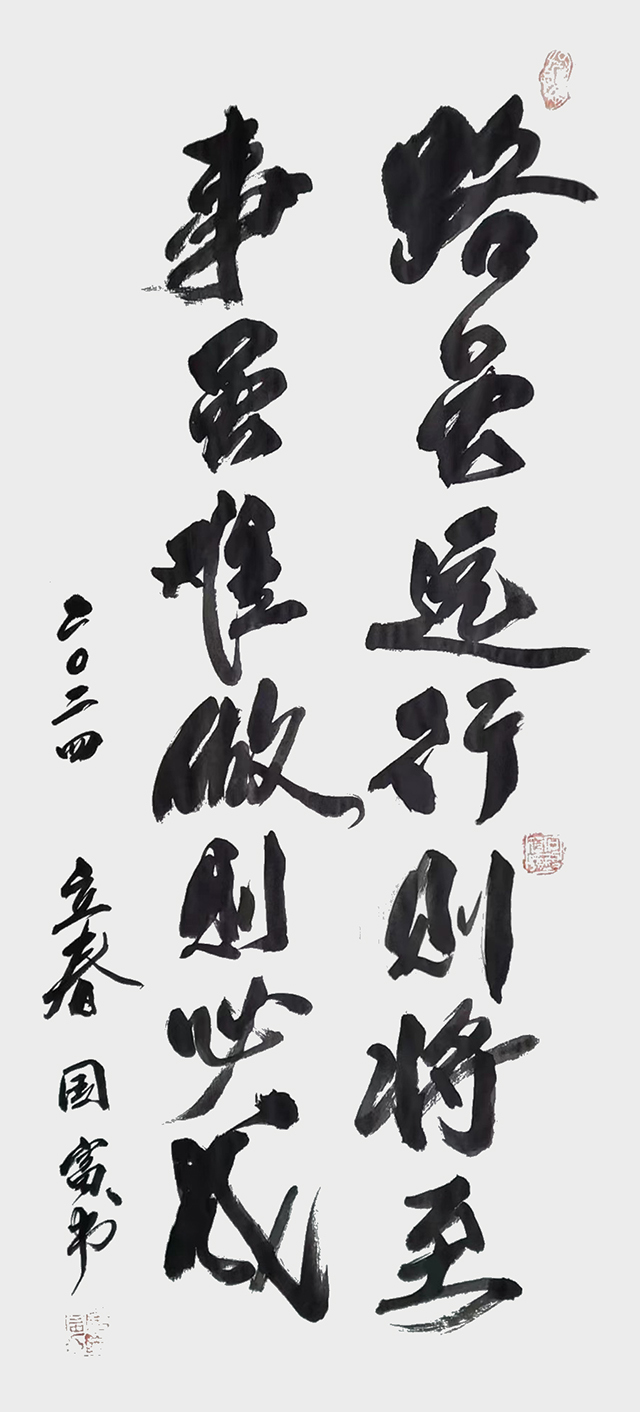 路虽远行则将至
事虽难做则必成
二〇二四 立春 国富书